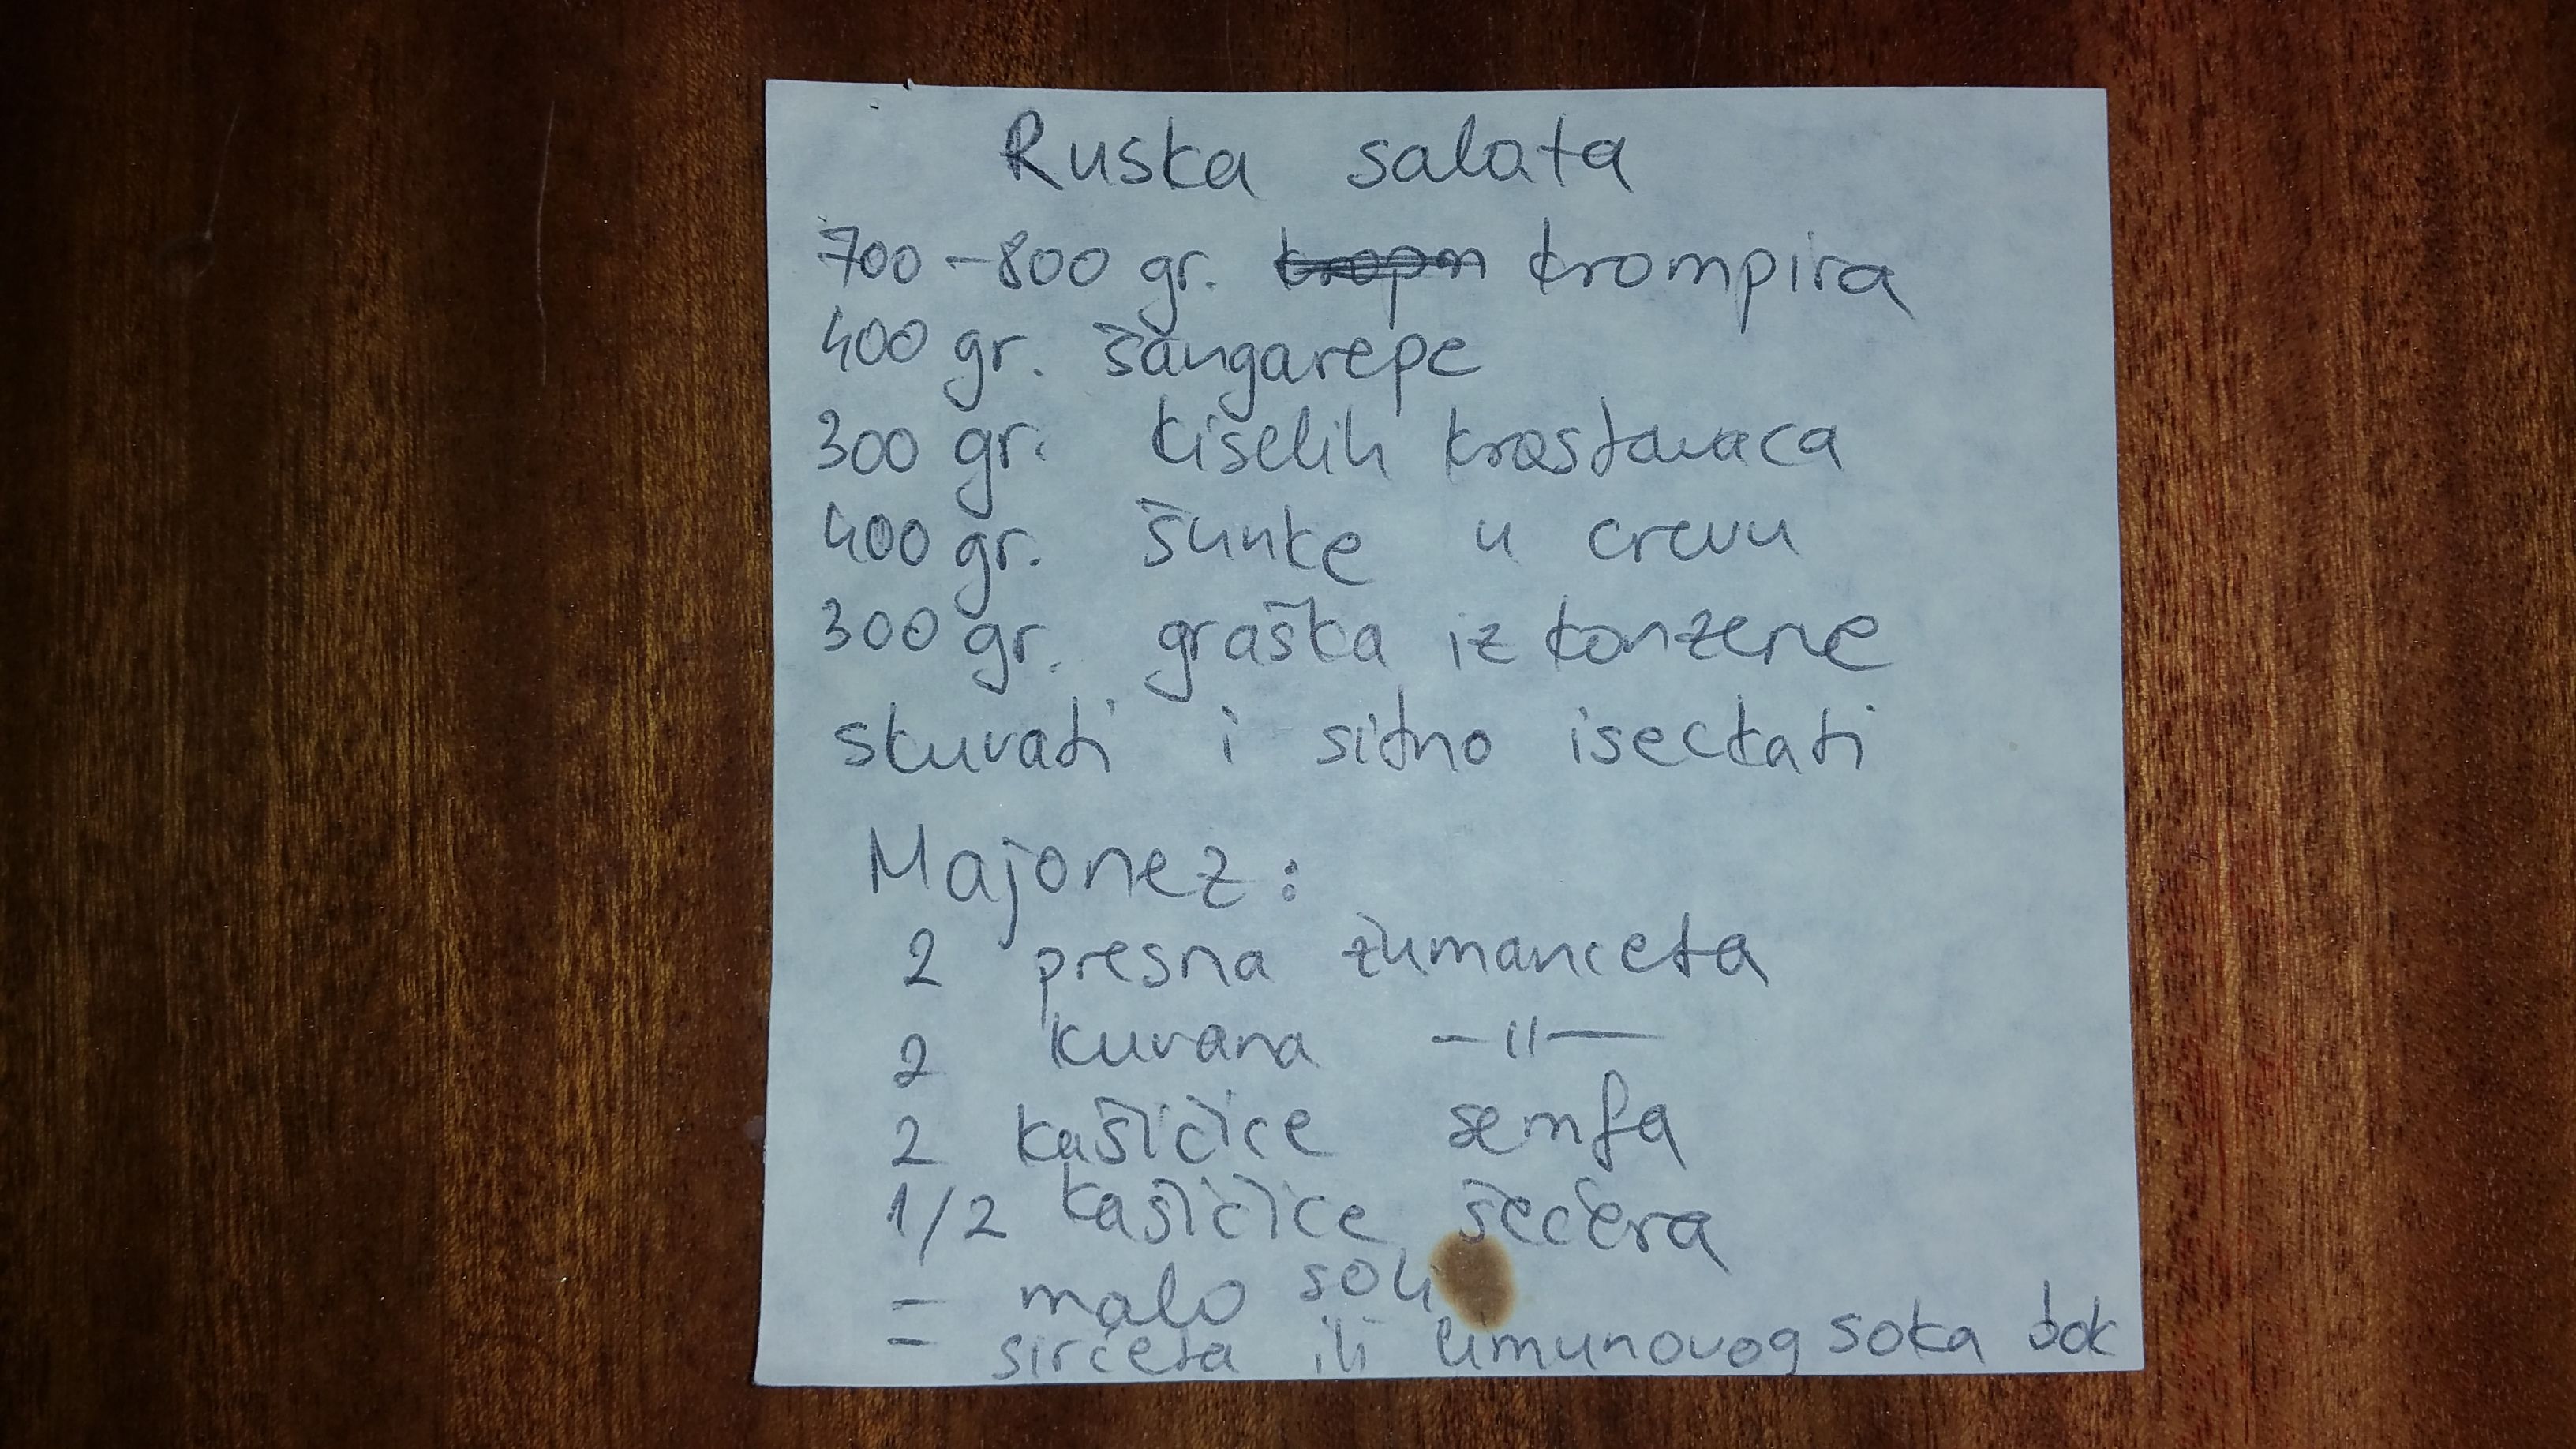 Ruska salata
700-800 gr. krompira
400 gr. šangarepe
300 gr. kiselih krastavaca
400 gr. šunke u crevu
300 gr. graška iz konzerve
skuvati i sitno iseckati
Majonez:
2 presna žumanceta
2 kuvana -||-
2 kašičice semfa
1/2 kašičice šećera
- malo soli
- sirćeta ili limunovog soka dok